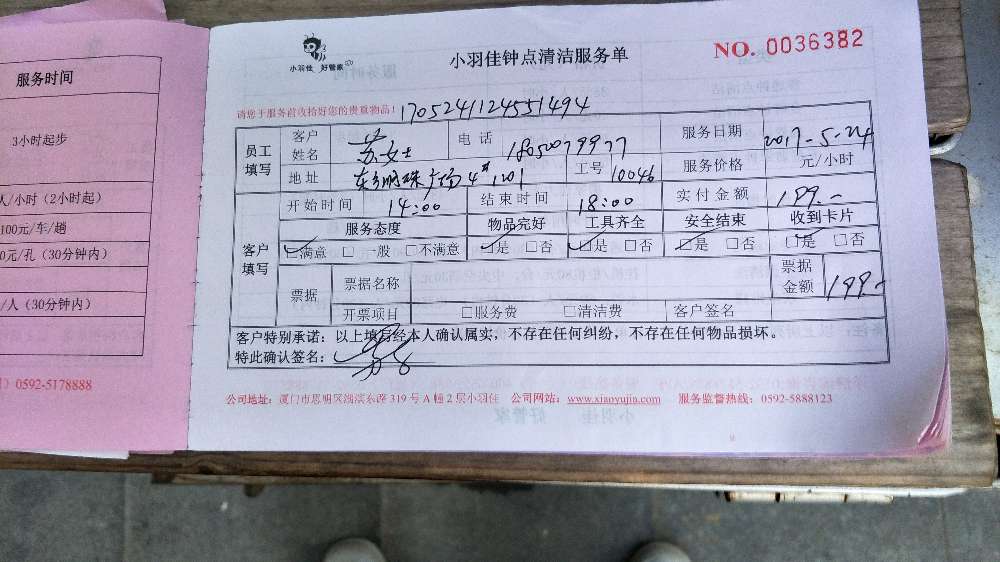 服务时间
3小时起步
人/小时（2小时起）
100元/车/趟
0元/孔（30分钟内）
/人（30分钟内）
0592-5178888
小羽佳 好管家
小羽佳钟点清洁服务单
NO. 0036382
请您于服务前收拾好您的贵重物品！1705241124551494
员工填写
客户姓名 苏女士 电话 服务日期 2017-5-24
地址 东方明珠广场4#1201 工号 10046 服务价格 元/小时
客户填写
开始时间 14:00 结束时间 18:00 实付金额 199.-
服务态度 物品完好 工具齐全 安全结束 收到卡片
☑满意 □一般 □不满意 ☑是 □否 ☑是 □否 ☑是 □否 ☑是 □否
票据 票据名称 票据金额 199.-
开票项目 □服务费 □清洁费 客户签名
客户特别承诺：以上填写经本人确认属实，不存在任何纠纷，不存在任何物品损坏。
特此确认签名：
公司地址：厦门市思明区湖滨东路319号A幢2层小羽佳 公司网站：www.xiaoyujia.com 服务监督热线：0592-5888123